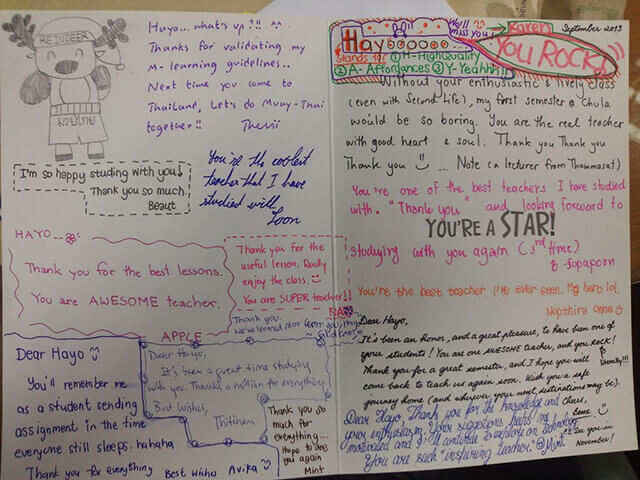 REINDEER
Hayo... what's up?!! ^^
Thanks for validating my
m-learning guidelines..
Next time you come to
Thailand, Let's do Muay-Thai
together!!
I'm so happy studing with you!
Thank you so much.
Beaut
You're the coolest
teacher that I have
studied with
Toon
HAYO...
Thank you for the best lessons.
You are AWESOME teacher.
APPLE
Thank you for the
useful lesson. Really
enjoy the class.
You are SUPER teacher!!
NAN
Thank you.
we've learned a lot from you,
Dear Hayo
You'll remember me
as a student sending
assignment in the time
everyone still sleeps. hahaha
Thank you for everything Best wishes Avika
Dear Hayo,
It's been a great time studying
with you. Thanks a million for everything.
Best Wishes,
Thitinan
Thank you so
much for
everything...
Hope to see
you again
Mint
We'll
miss you!
Hayooooo...
Stands for ① H-High Quality
② A- Affordances ③ Y-Yeahhh!!
Karen
September 2013
YOU ROCK!
Without your enthusiastic & lively class
(even with Second Life), my first semester @ Chula
would be so boring. You are the real teacher
with good heart & soul. Thank you Thank you
Thank you ... Note (a lecturer from Thammasat)
You're one of the best teachers I have studied
with. "Thank you" and looking forward to
YOU'RE A STAR!
studying with you again (3rd time)
Supaporn
You're the best teacher I've ever seen. My hero lol.
Nopthira
Dear Hayo,
It's been an honor, and a great pleasure, to have been one of
your students! You are one AWESOME teacher, and you Rock!
Thank you for a great semester, and I hope you will
come back to teach us again soon. Wish you a safe
journey home (and wherever your next destinations may be).
Cheers,
P.S. See you in
November!
Dear Hayo, Thank you for the knowledge and
your enthusiasm. Your suggestions
motivated and I'll continue to explore on technology
You are such "inspiring teacher." @Mint